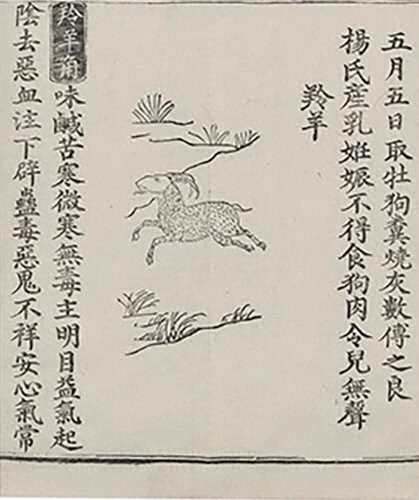 五月五日取牡狗糞燒灰數傅之良
楊氏産乳姙娠不得食狗肉令兒無聲
羚羊
羚羊角味鹹苦寒微寒無毒主明目益氣起
陰去惡血注下辟蠱毒惡鬼不祥安心氣常